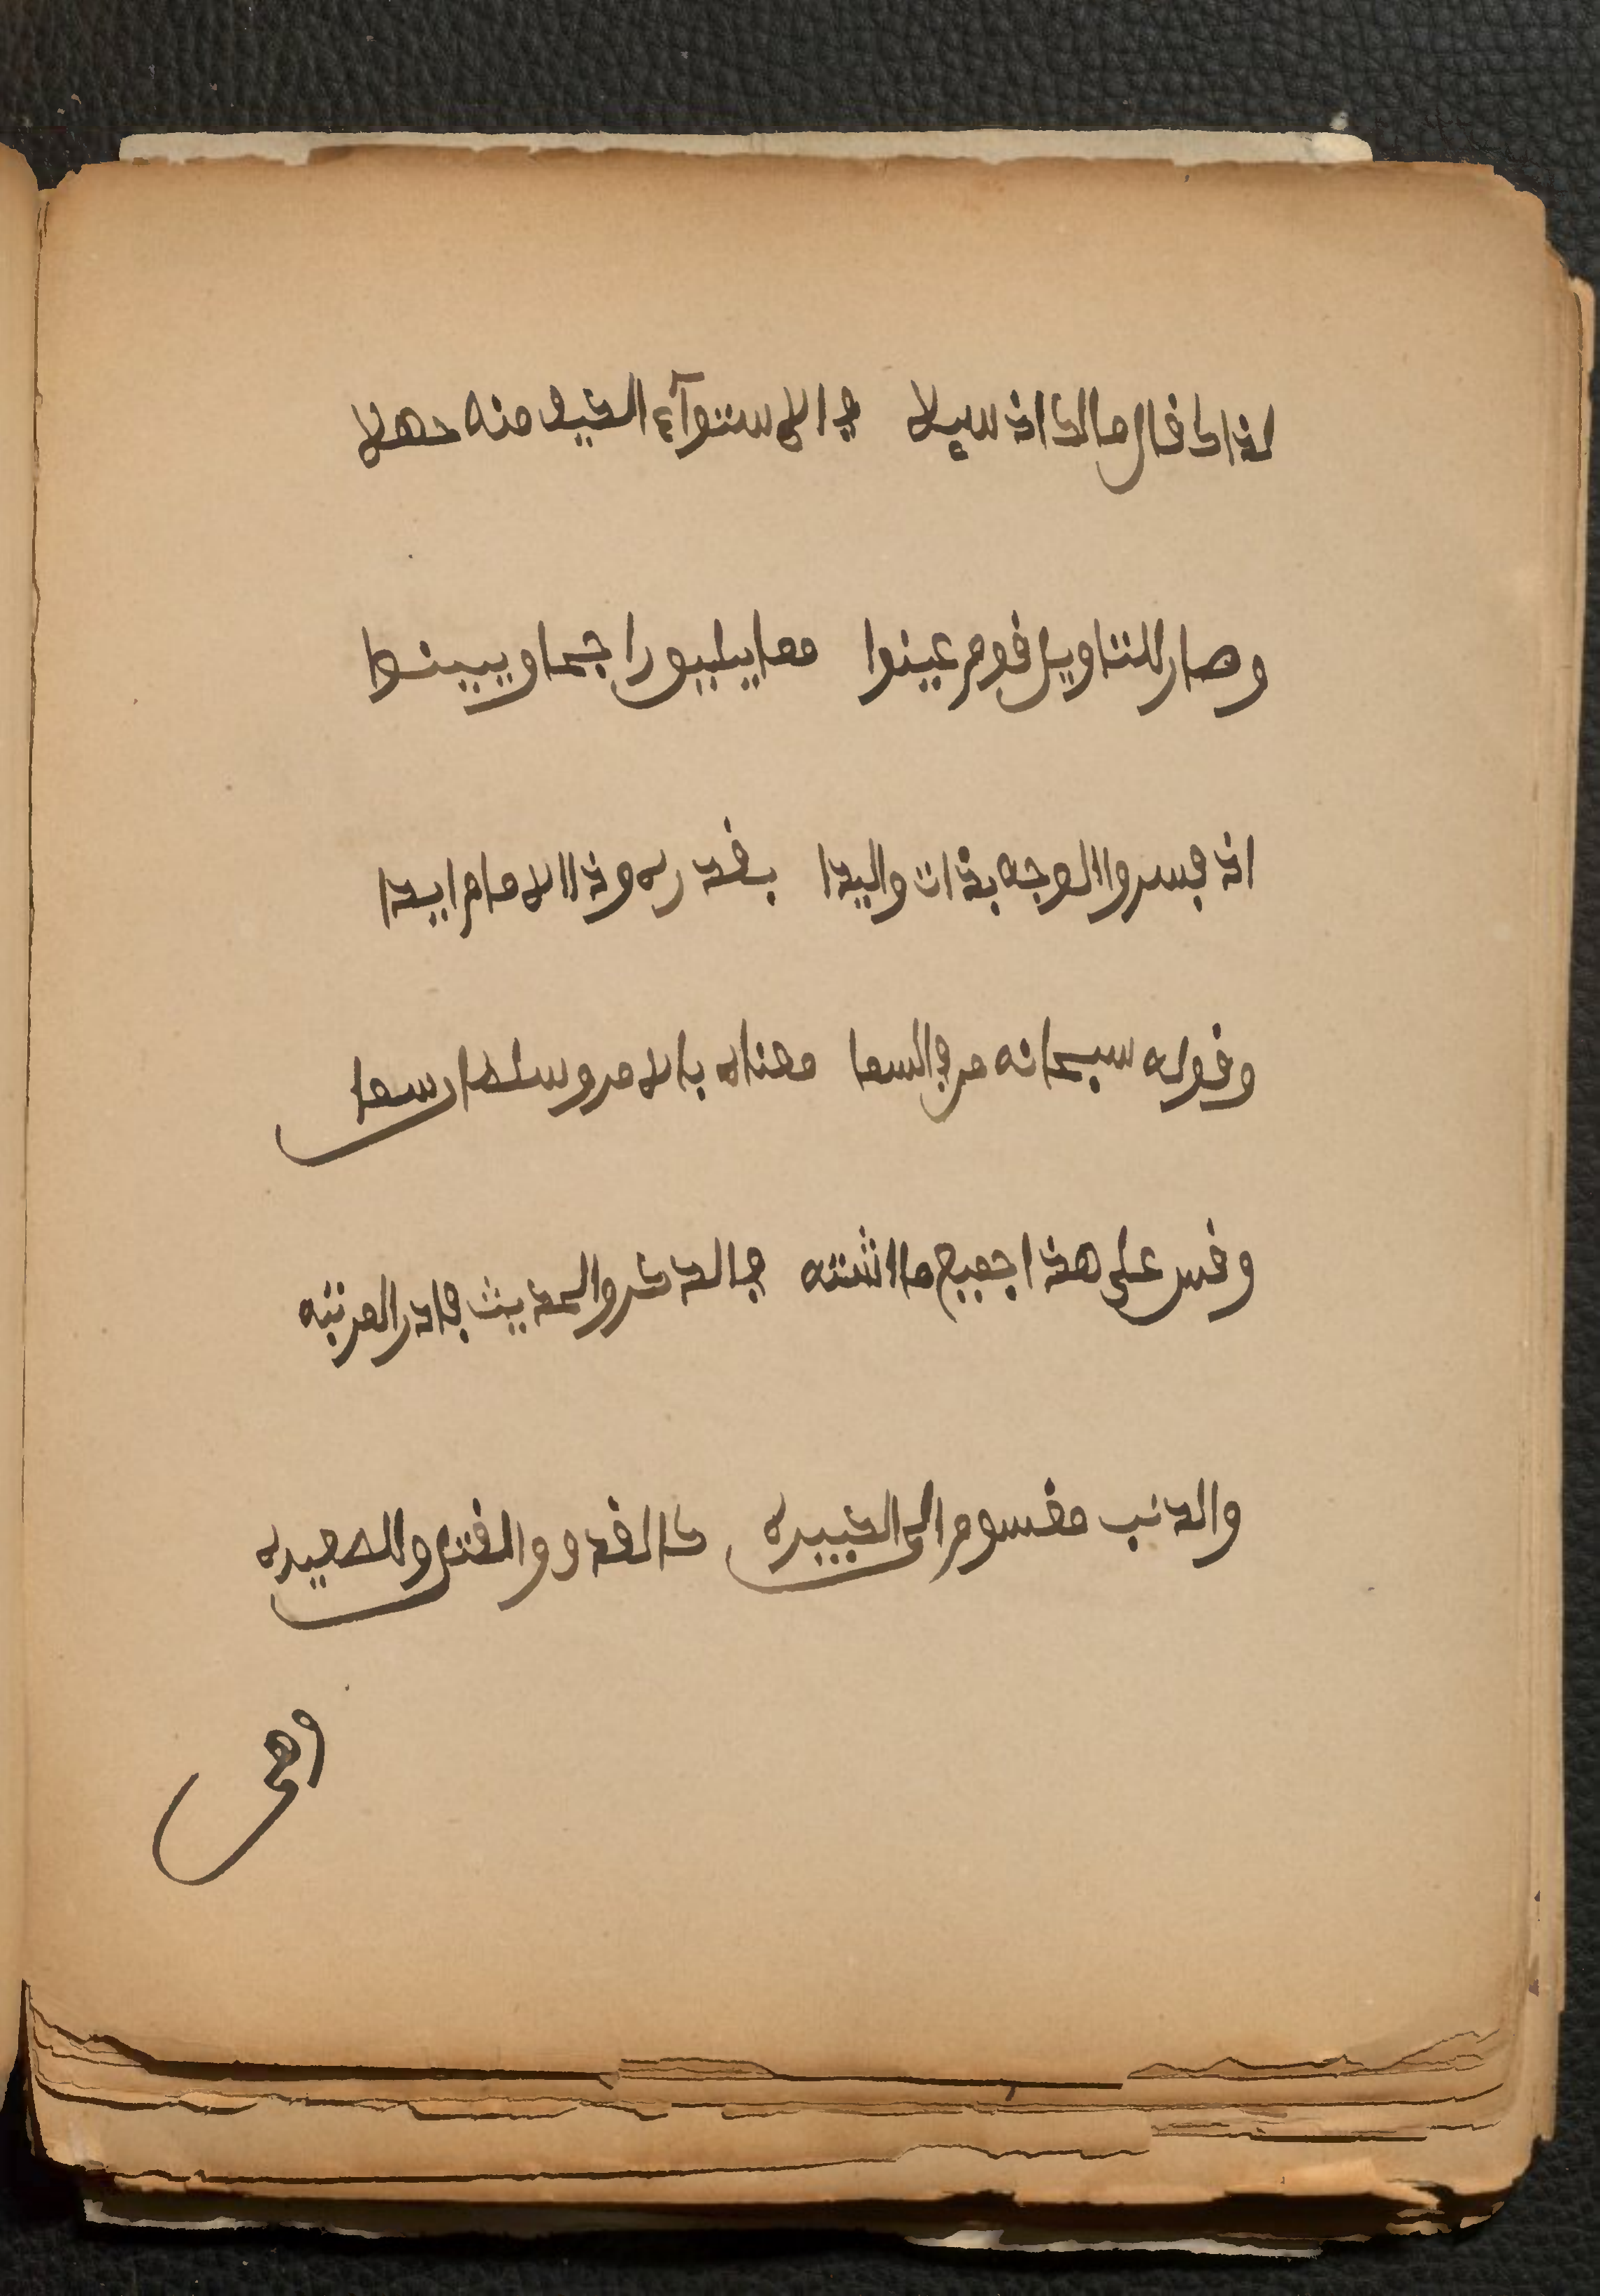 لذاك قال مالك اذ سيلا في الاستوآء الكيف منه جهلا
وصار للتاويل قوم عينوا معا يليق راجحا ويبينوا
اذ فسروا الوجه بذات واليدا بقدره وذا الامام ايدا
وقوله سبحانه من في السما معناه بالامر وسلطان سما
وقس على هذا جميع ما اشتبه في الذكر والحديث فادر المرتبه
والذنب مقسوم الى الكبيره كالقذف والقتل وللصغيره
وهي